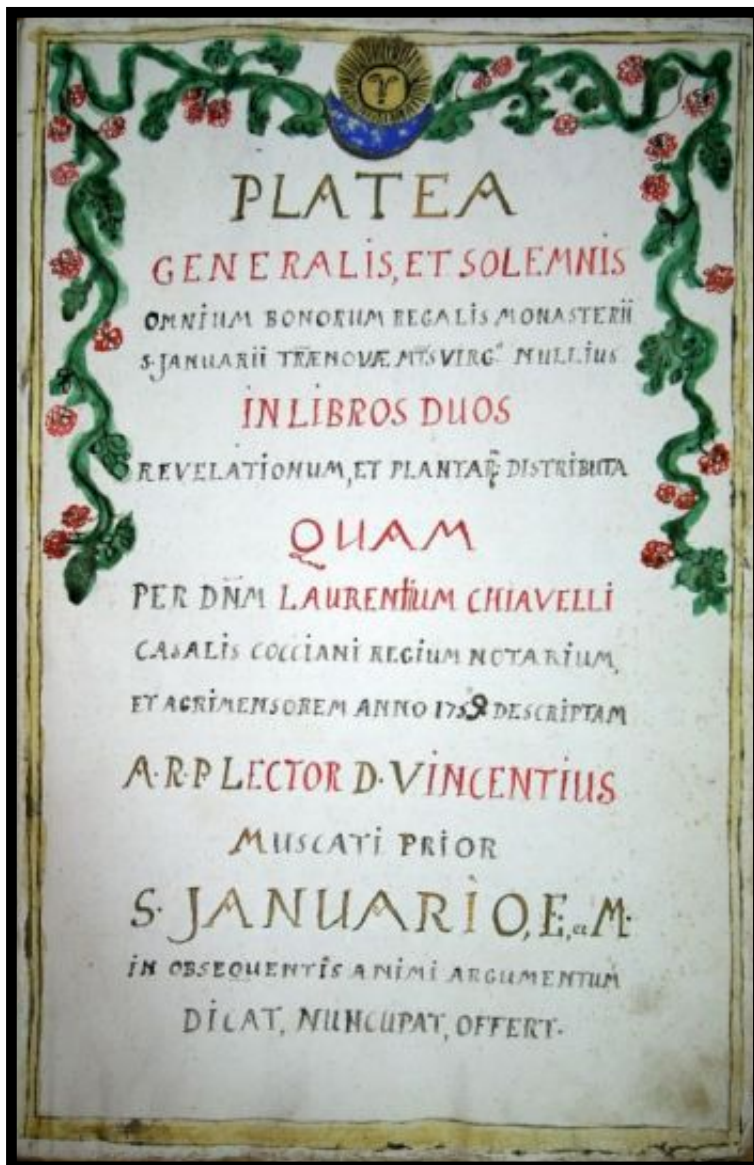 PLATEA
GENERALIS, ET SOLEMNIS
OMNIUM BONORUM REGALIS MONASTERII
S. JANUARII TRÆNOVÆ MTS VIRG.s NULLIUS
IN LIBROS DUOS
REVELATIONUM, ET PLANTAR̃: DISTRIBUTA
QUAM
PER DÑM LAURENTIUM CHIAVELLI
CASALIS COCCIANI REGIUM NOTARIUM,
ET AGRIMENSOREM ANNO 1759 DESCRIPTAM
A·R·P LECTOR D· VINCENTIUS
MUSCATI PRIOR
S· JANUARIO, E, et M·
IN OBSEQUENTIS ANIMI ARGUMENTUM
DICAT, NUNCUPAT, OFFERT.